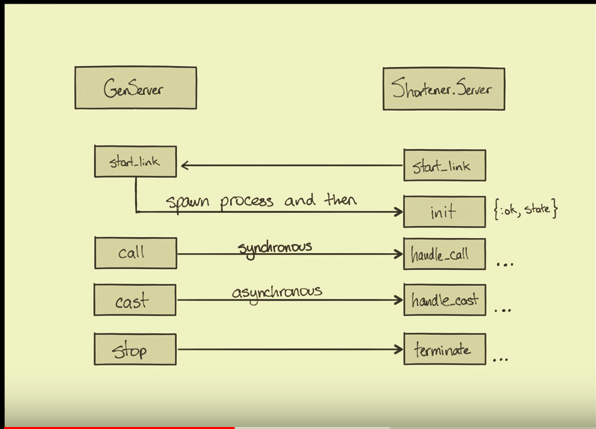 GenServer
Shortener.Server
start_link
start_link
spawn process and then
init
{:ok, state}
call
synchronous
handle_call
...
cast
asynchronous
handle_cast
...
stop
terminate
...